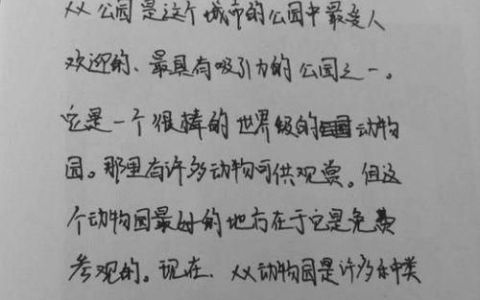 XX公园是这个城市的公园中最受人
欢迎的、最具有吸引力的公园之一。
它是一个很棒的世界级的动物
园。那里有许多动物可供观赏。但这
个动物园最好的地方在于它是免费
参观的。现在，XX动物园是许多种类